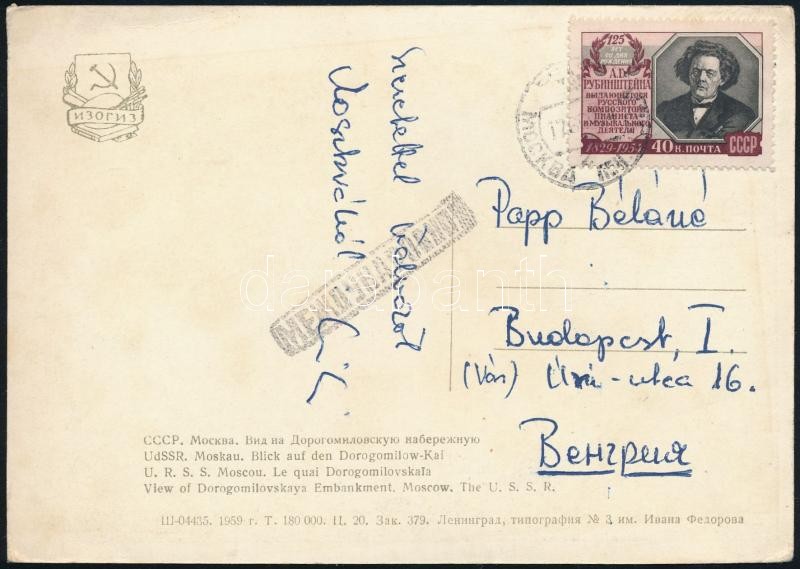 ИЗОГИЗ
125
ЛЕТ
СО ДНЯ
РОЖДЕНИЯ
А.Г.
РУБИНШТЕЙНА
ВЫДАЮЩЕГОСЯ
РУССКОГО
КОМПОЗИТОРА
ПИАНИСТА
И МУЗЫКАЛЬНОГО
ДЕЯТЕЛЯ
1829-1954
40 к. ПОЧТА
СССР
МОСКВА
МЕЖДУНАРОДНОЕ
Moszkvából
darabanth
Papp Béláné
Budapest, I.
(Vár) Úri-utca 16.
Венгрия
СССР. Москва. Вид на Дорогомиловскую набережную
UdSSR. Moskau. Blick auf den Dorogomilow-Kai
U. R. S. S. Moscou. Le quai Dorogomilovskaïa
View of Dorogomilovskaya Embankment. Moscow. The U. S. S. R.
Ш-04435. 1959 г. Т. 180 000. Ц. 20. Зак. 379. Ленинград, типография № 3 им. Ивана Федорова